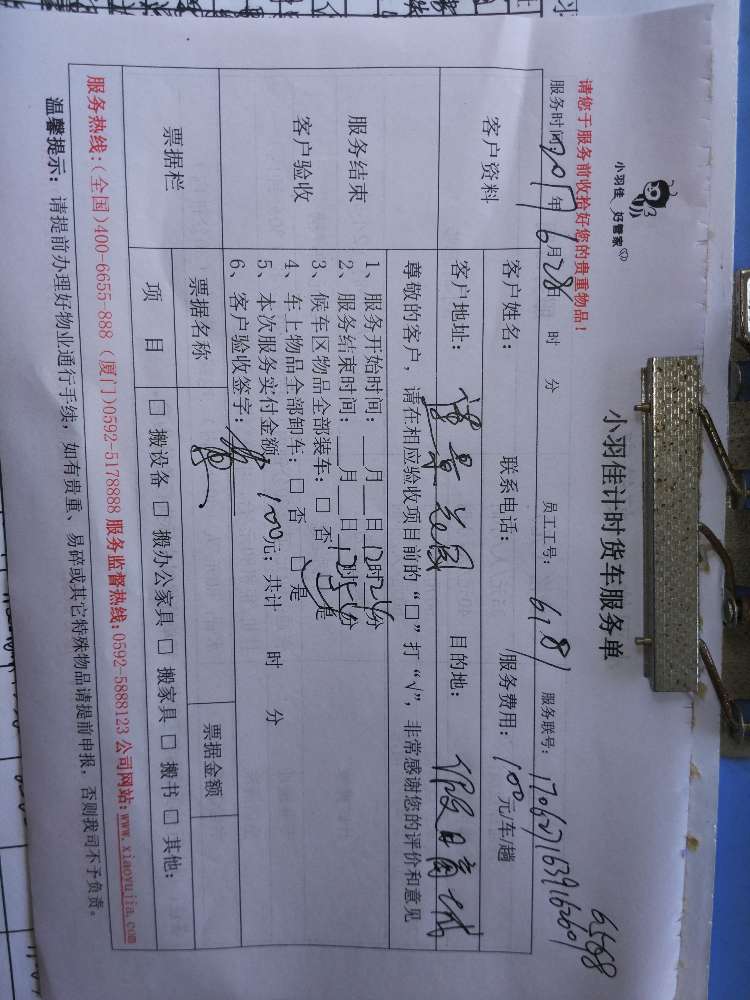 小羽佳 好管家
小羽佳计时货车服务单
6568
请您于服务前收拾好您的贵重物品！
服务时间 2017年 6月28日 时 分 员工工号： 6181 服务联号：
客户资料 客户姓名： 联系电话： 服务费用：100元/车/趟
客户地址： 花园 目的地： 假日
尊敬的客户，请在相应验收项目前的“□”打“√”，非常感谢您的评价和意见
服务结束
客户验收
1、服务开始时间：__月__日 时 分
2、服务结束时间：__月__日 时 分
3、候车区物品全部装车：□ 否 是
4、车上物品全部卸车：□ 否 □ 是
5、本次服务实付金额 100元；共计 时 分
6、客户验收签字：
票据栏 票据名称 票据金额
项 目 □ 搬设备 □ 搬办公家具 □ 搬家具 □ 搬书 □ 其他：
服务热线：(全国)400-6655-888 (厦门)0592-5178888 服务监督热线：0592-5888123 公司网站：www.xiaoyujia.com
温馨提示：请提前办理好物业通行手续，如有贵重、易碎或其它特殊物品请提前申报，否则我司不予负责。